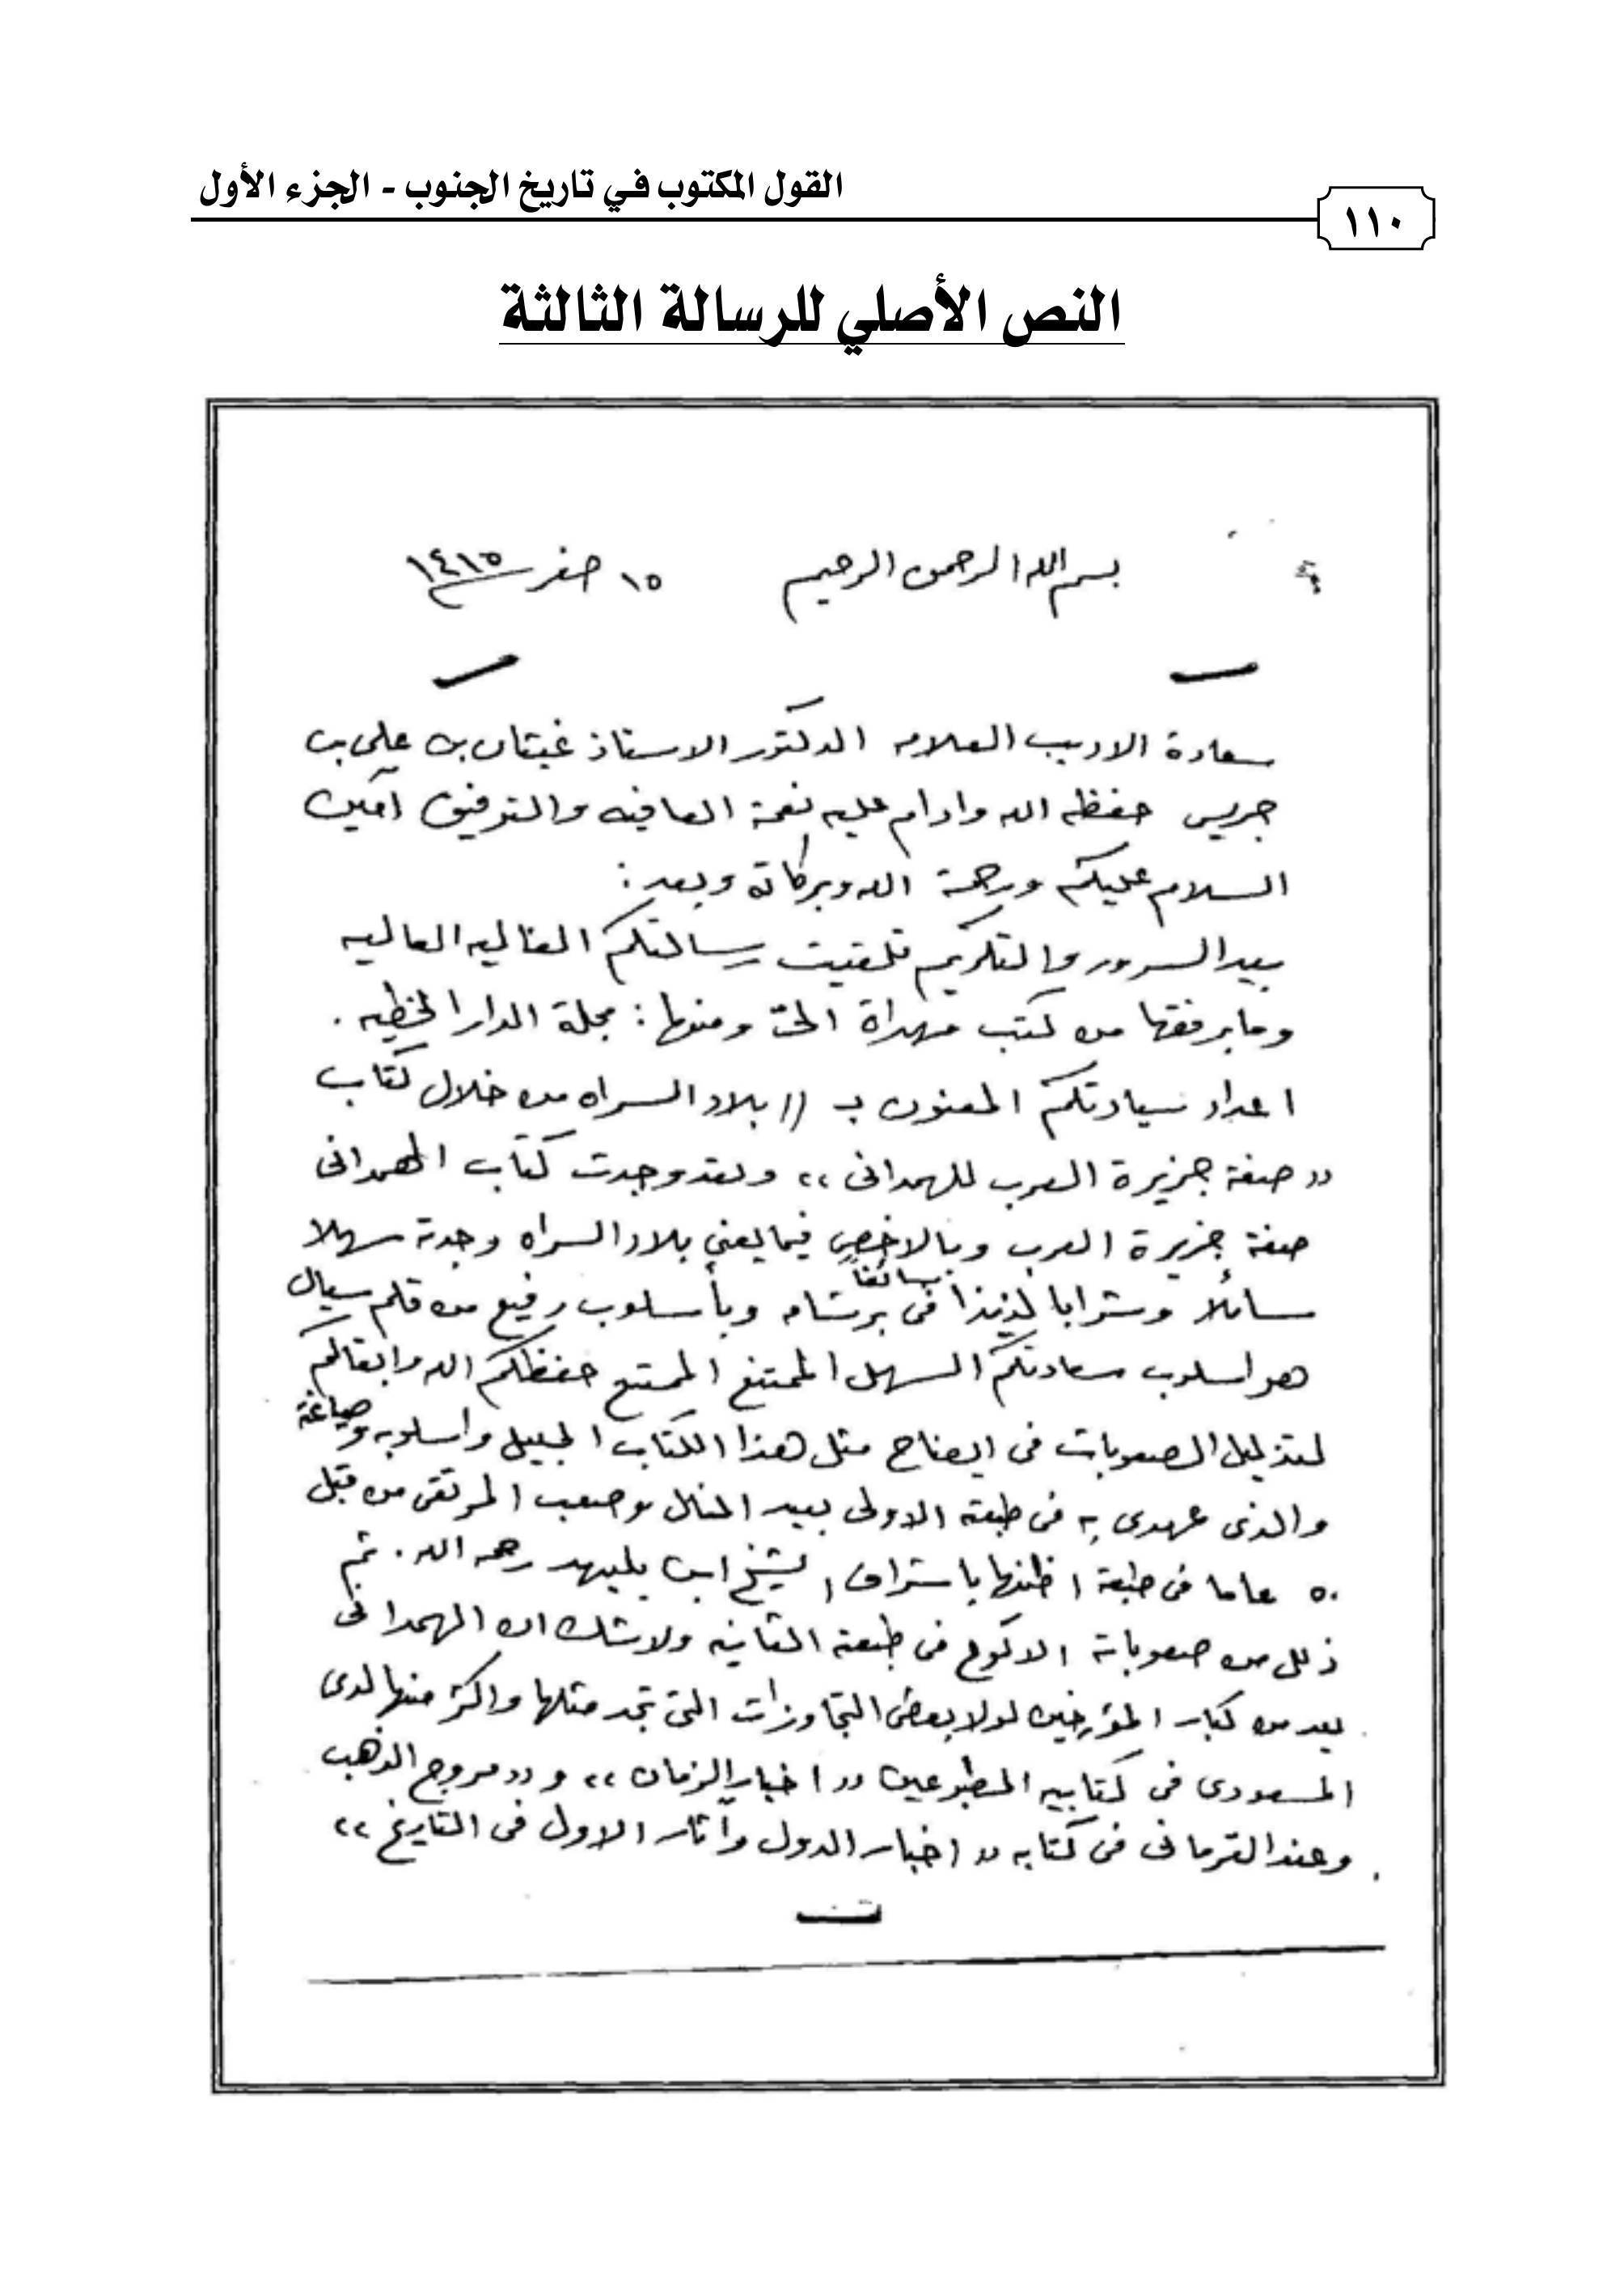 القول المكتوب في تاريخ الجنوب - الجزء الأول
١١٠
النص الأصلي للرسالة الثالثة
بسم الله الرحمن الرحيم ١٥ صفر ١٤١٥
سعادة الاديب العلامه الدكتور الاستاذ غيثان بن علي بن
جريس حفظه الله وادام عليه نعمة العافيه والتوفيق آمين
السلام عليكم ورحمة الله وبركاته وبعد :
بيد السرور والتكريم تلقيت رسالتكم الغاليه العاليه
وما برفقها من كتب مهداة اليّ ومنها : مجلة الدار
اعداد سيادتكم المعنون بـ (( بلاد السراه من خلال كتاب
(( صفة جزيرة العرب للهمدانى ,, ولقد وجدت كتاب الهمدانى
صفة جزيرة العرب وبالاخص فيما يعني بلاد السراه وجدته سهلا
سائلاً وشرابا لذيذا سائغاً فى وبأسلوب رفيع من قلم سيال
هو اسلوب سعادتكم السهل الممتنع الممتع حفظكم الله وابقاكم
لتذليل الصعوبات فى ايضاح مثل هذا الكتاب الجميل واسلوبه وصياغة
والذى عهدى به فى طبعته الاولى بعيد المنال وصعب المرتقى من قبل
٥٠ عاما فى طبعة اظنها باشراف الشيخ ابن بليهد رحمه الله . ثم
ذلل من صعوباته الاكوع فى طبعته الثانيه ولاشك ان الهمدانى
يعد من كبار المؤرخين لولا بعض التجاوزات التى تجد مثلها واكثر منها لدى
المسعودى فى كتابيه المطبوعين (( اخبار الزمان ,, و (( مروج الذهب
وعند القرمانى فى كتابه (( اخبار الدول وآثار الاول فى التاريخ ,,